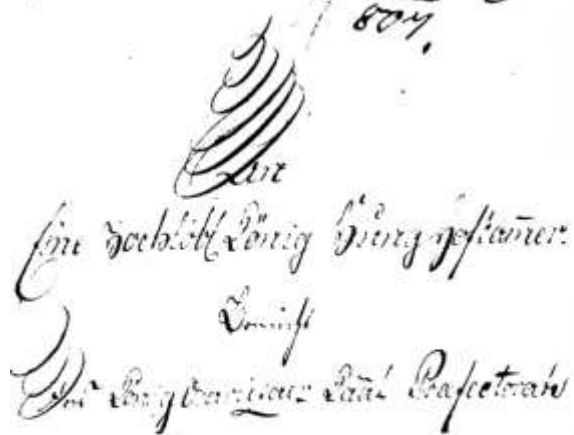 807.
An
Eine Hochlöbl König Hung Hofkam̄er.
Bericht
Des König Praefectorats